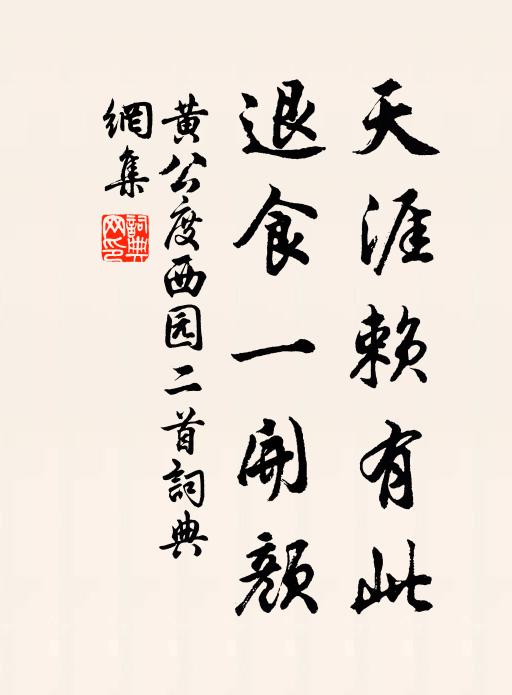 天涯赖有此
退食一開颜
黄公度西园二首詞典
網集
詞典網印